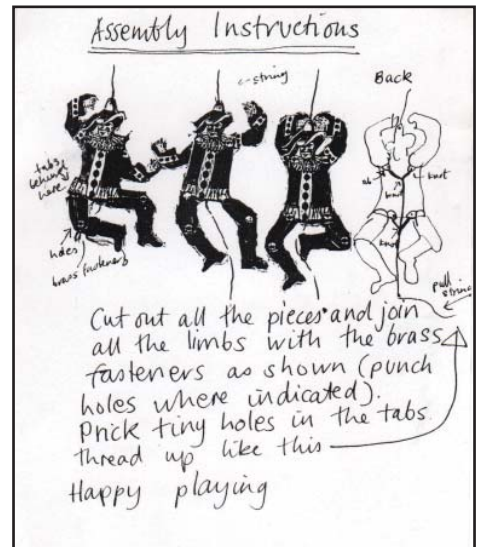 Assembly Instructions
string
Back
tabs
behind
here
knot
knot
holes
brass fasteners
pull
string
Cut out all the pieces and join
all the limbs with the brass
fasteners as shown (punch
holes where indicated).
Prick tiny holes in the tabs.
thread up like this
Happy playing